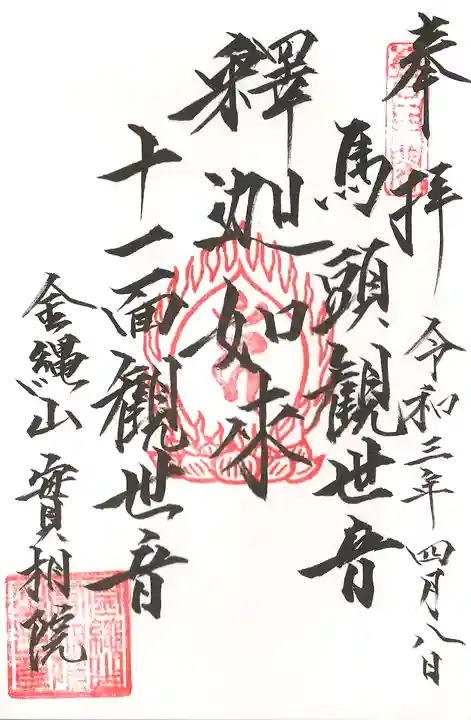 奉拝
令和三年四月八日
馬頭観世音
釋迦如來
十一面観世音
金縄山實相院